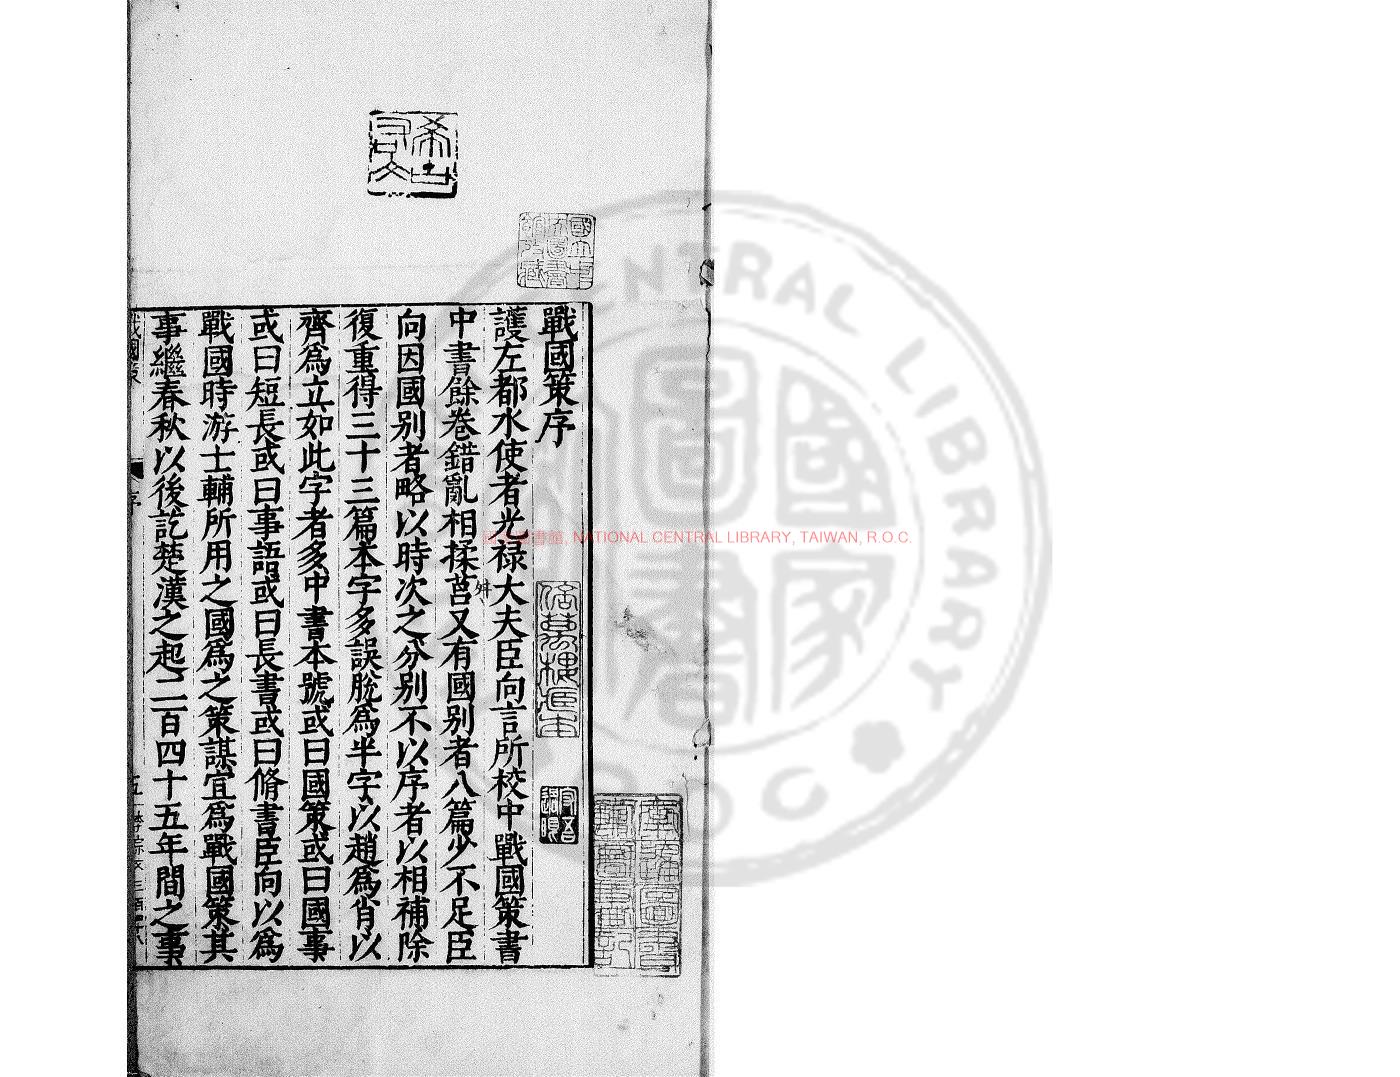 戰國策序
護左都水使者光祿大夫臣向言所校中戰國策書
中書餘卷錯亂相揉莒又有國別者八篇少不足臣
向因國別者略以時次之分別不以序者以相補除
復重得三十三篇本字多誤脫為半字以趙為肖以
齊為立如此字者多中書本號或曰國策或曰國事
或曰短長或曰事語或曰長書或曰脩書臣向以為
戰國時游士輔所用之國為之策謀宜為戰國策其
事繼春秋以後訖楚漢之起二百四十五年間之事
希古右文
國立中央圖書館收藏
NATIONAL CENTRAL LIBRARY, TAIWAN, R.O.C.
CENTRAL LIBRARY
國家圖書